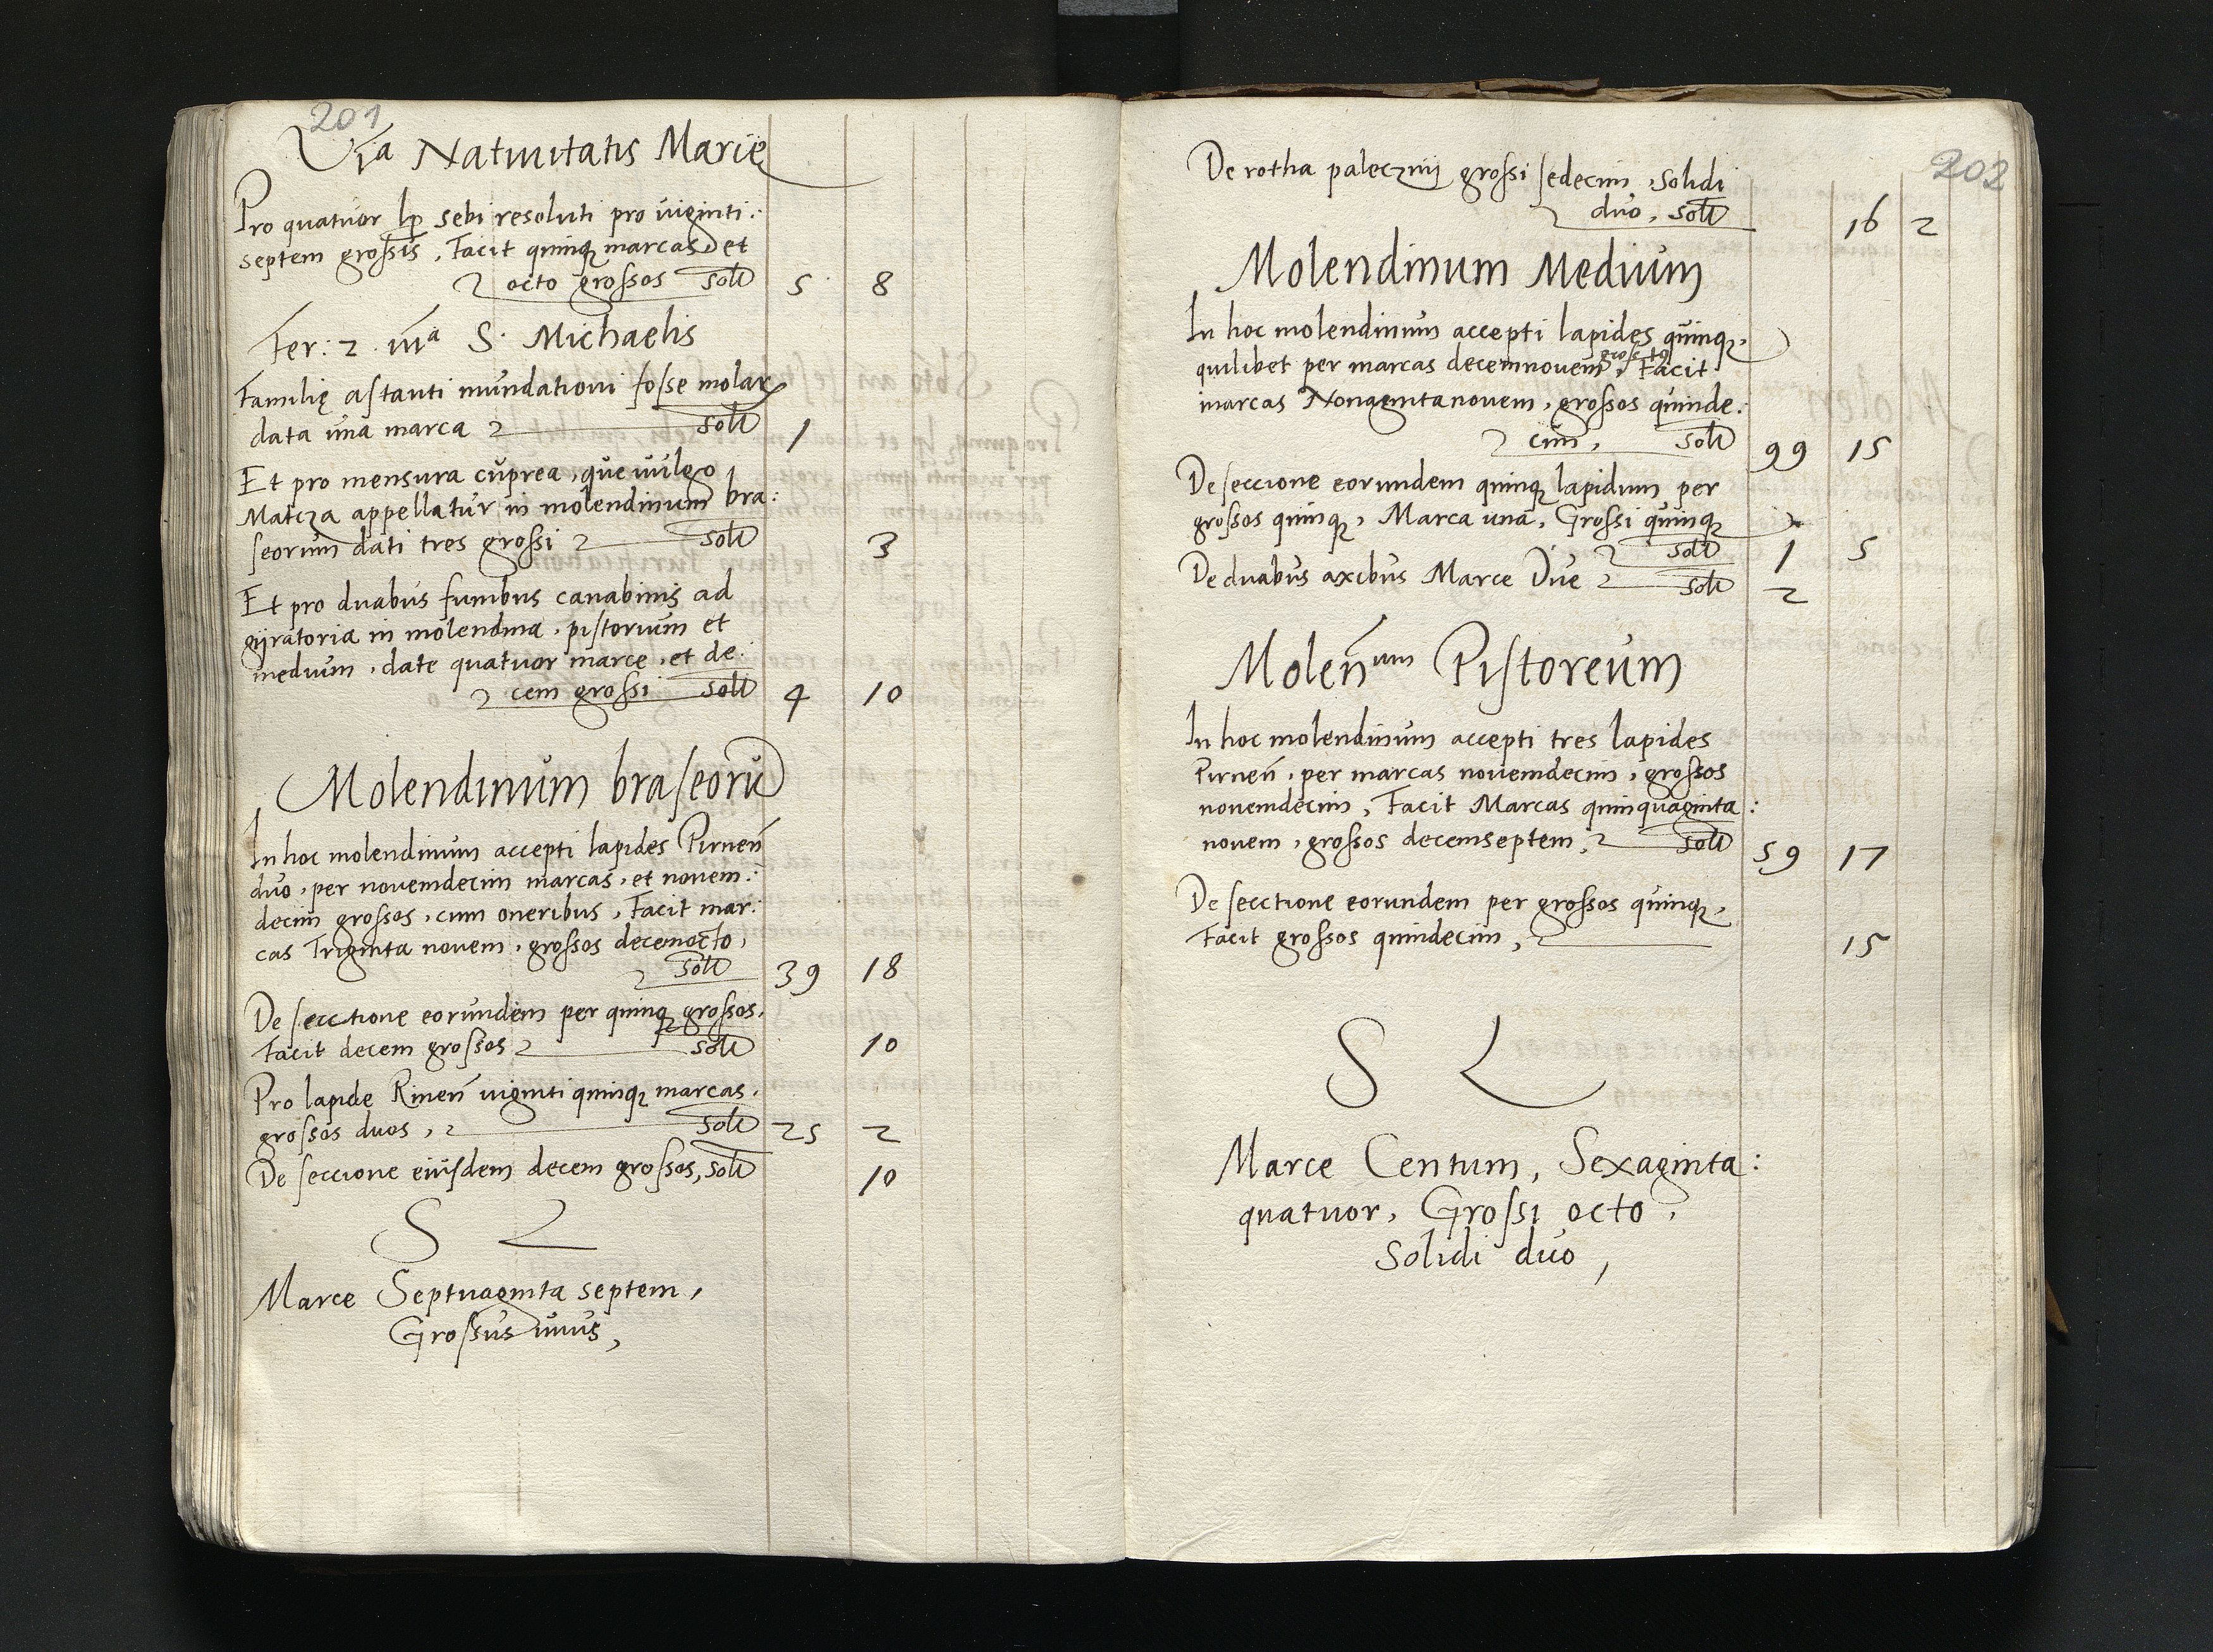 201
Via Natiuitatis Marię
Pro quatuor lp sebi resoluti pro uiginti:
septem grossis, Facit quinq marcas et
octo grossos solt 5 8
Fer: 2 iiia S. Michaelis
Familię astanti mundationi fosse molar
data una marca solt 1
Et pro mensura cuprea, que uulgo
Matcza appellatur in molendinum bra:
seorum dati tres grossi solt 3
Et pro duabus funibus canabinis ad
gyratoria in molendina, pistorium et
medium, date quatuor marce, et de:
cem grossi solt 4 10
Molendinum braseorū
In hoc molendinum accepti lapides Pirneñ
duo, per nouemdecim marcas, et nouem:
decim grossos, cum oneribus, Facit mar:
cas Triginta nouem, grossos decemocto,
solt 39 18
De secctione eorundem per quinq grossos,
Facit decem grossos solt 10
Pro lapide Rineñ uiginti quinq marcas,
grossos duos, solt 25 2
De seccione eiusdem decem grossos, solt 10
S L
Marce Septuaginta septem,
Grossus unus,
202
De rotha paleczny grossi sedecim, solidi
duo, solt 16 2
Molendinum Medium
In hoc molendinum accepti lapides quinq,
quilibet per marcas decemnouem, Facit
marcas Nonagintanouem, grossos quinde:
cim, solt 99 15
De seccione eorundem quinq lapidum per
grossos quinq, Marca una, Grossi quinq
solt 1 5
De duabus axibus Marce Due solt 2
Moleñum Pistoreum
In hoc molendinum accepti tres lapides
Pirneñ, per marcas nouemdecim, grossos
nouemdecim, Facit Marcas quinquaginta:
nouem, grossos decemseptem, solt 59 17
De secctione eorundem per grossos quinq,
Facit grossos quindecim, 15
S L
Marce Centum, Sexaginta:
quatuor, Grossi octo,
Solidi duo,